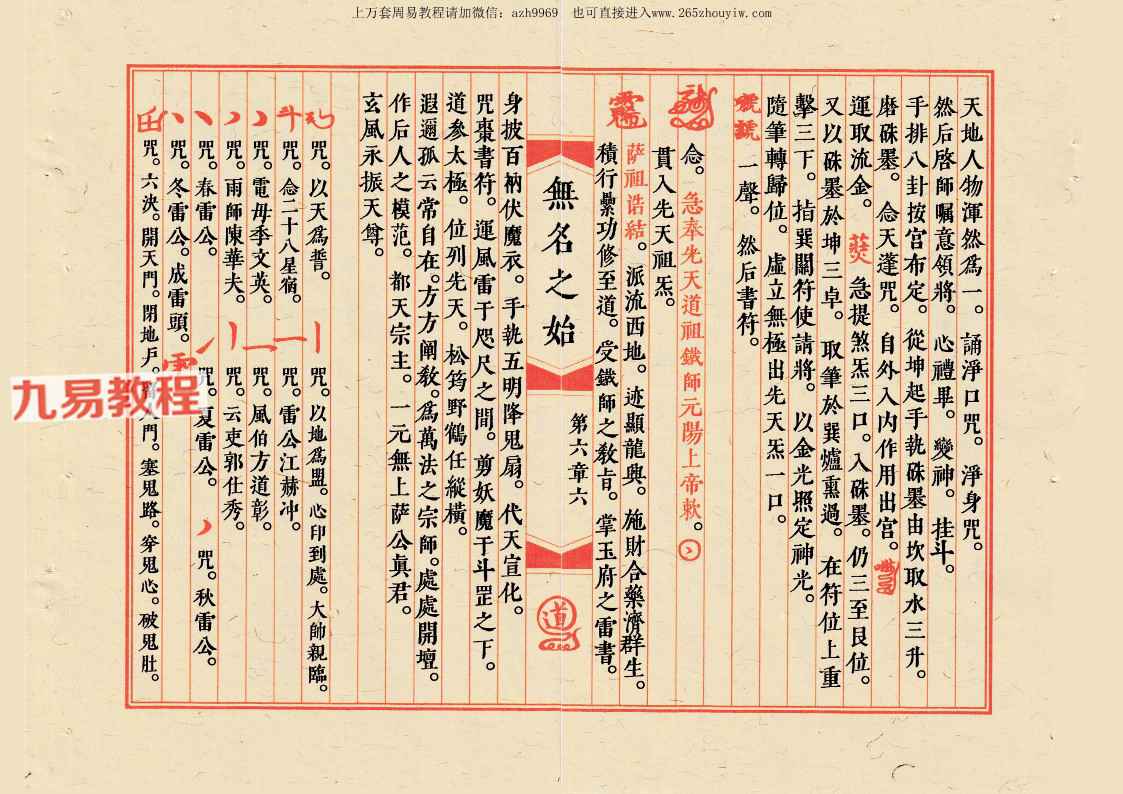 上万套周易教程请加微信：azh9969 也可直接进入www.265zhouyiw.com
天地人物渾然為一。誦淨口咒。淨身咒。
然后啓師嘱意領將。心禮畢。變神。挂斗。
手排八卦按宮布定。從坤起手執硃墨由坎取水三升。
磨硃墨。念天蓬咒。自外入內作用出宮。
運取流金。急提煞炁三口。入硃墨。仍三至艮位。
又以硃墨於坤三卓。取筆於巽爐熏過。在符位上重
擊三下。指巽關符使請將。以金光照定神光。
隨筆轉歸位。虛立無極出先天炁一口。
一聲。然后書符。
念。急奉先天道祖鐵師元陽上帝敕。
貫入先天祖炁。
萨祖诰结。派流西地。迹顯龍興。施財合藥濟群生。
積行纍功修至道。受鐵師之教旨。掌玉府之雷書。
無名之始
第六章六
道
身披百衲伏魔衣。手執五明降鬼扇。代天宣化。
咒棗書符。運風雷于咫尺之間。剪妖魔于斗罡之下。
道參太極。位列先天。松筠野鶴任縱橫。
遐邇孤云常自在。方方阐教。為萬法之宗師。處處開壇。
作后人之模范。都天宗主。一元無上萨公真君。
玄風永振天尊。
咒。以天為誓。咒。以地為盟。心印到處。大帥親臨。
斗咒。念二十八星宿。咒。雷公江赫冲。
咒。電母季文英。咒。風伯方道彰。
咒。雨師陳華夫。咒。云吏郭仕秀。
咒。春雷公。咒。夏雷公。咒。秋雷公。
咒。冬雷公。成雷頭。
咒。六決。開天門。閉地戶。門。塞鬼路。穿鬼心。破鬼肚。
九易教程